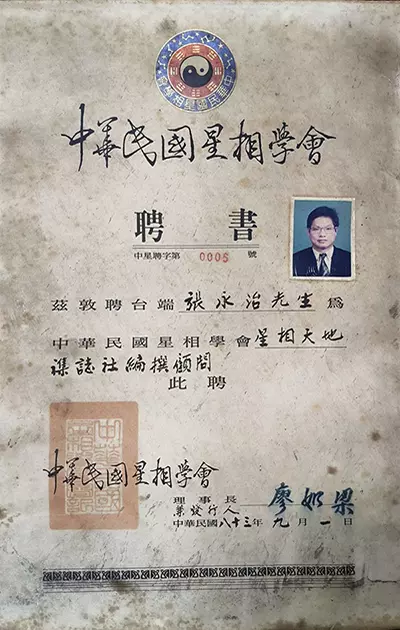 中華民國星相學會
中華民國星相學會
聘書
中星聘字第 0005 號
茲敦聘台端張永治先生為
中華民國星相學會星相天地
雜誌社編撰顧問
此聘
中華民國星相學會
理事長
兼發行人
中華民國八十三年九月一日